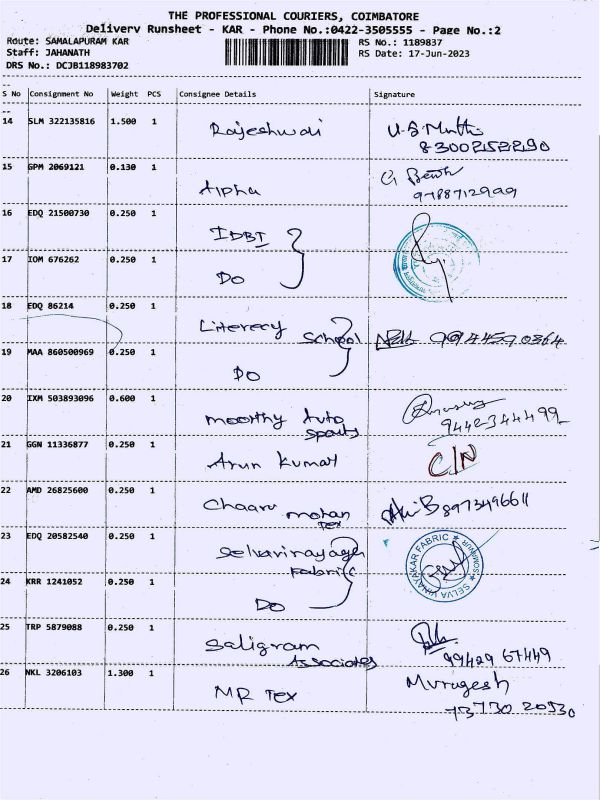 THE PROFESSIONAL COURIERS, COIMBATORE
Delivery Runsheet - KAR - Phone No.:0422-3505555 - Page No.:2
Route: SAMALAPURAM KAR
Staff: JAHANATH
DRS No.: DCJB118983702
RS No.: 1189837
RS Date: 17-Jun-2023
S No Consignment No Weight PCS Consignee Details Signature
14 SLM 322135816 1.500 1 Rajeshwari
15 GPM 2069121 0.130 1 Alpha
16 EDQ 21500730 0.250 1 IDBI
17 IOM 676262 0.250 1 DO
18 EDQ 86214 0.250 1 Literecy School
19 MAA 860500969 0.250 1 DO
20 IXM 503893096 0.600 1 moorthy Auto 9442344499
spares
21 GGN 11336877 0.250 1 Arun Kumar C/N
22 AMD 26825600 0.250 1 Chaaru mohan 8973496611
Tex
23 EDQ 20582540 0.250 1 Selvavinayaga
Fabric
SELVA VINAYAKAR FABRIC
24 KRR 1241052 0.250 1 DO
25 TRP 5879088 0.250 1 Saligram
Associates 99429 67449
26 NKL 3206103 1.300 1 MR Tex Murugesh